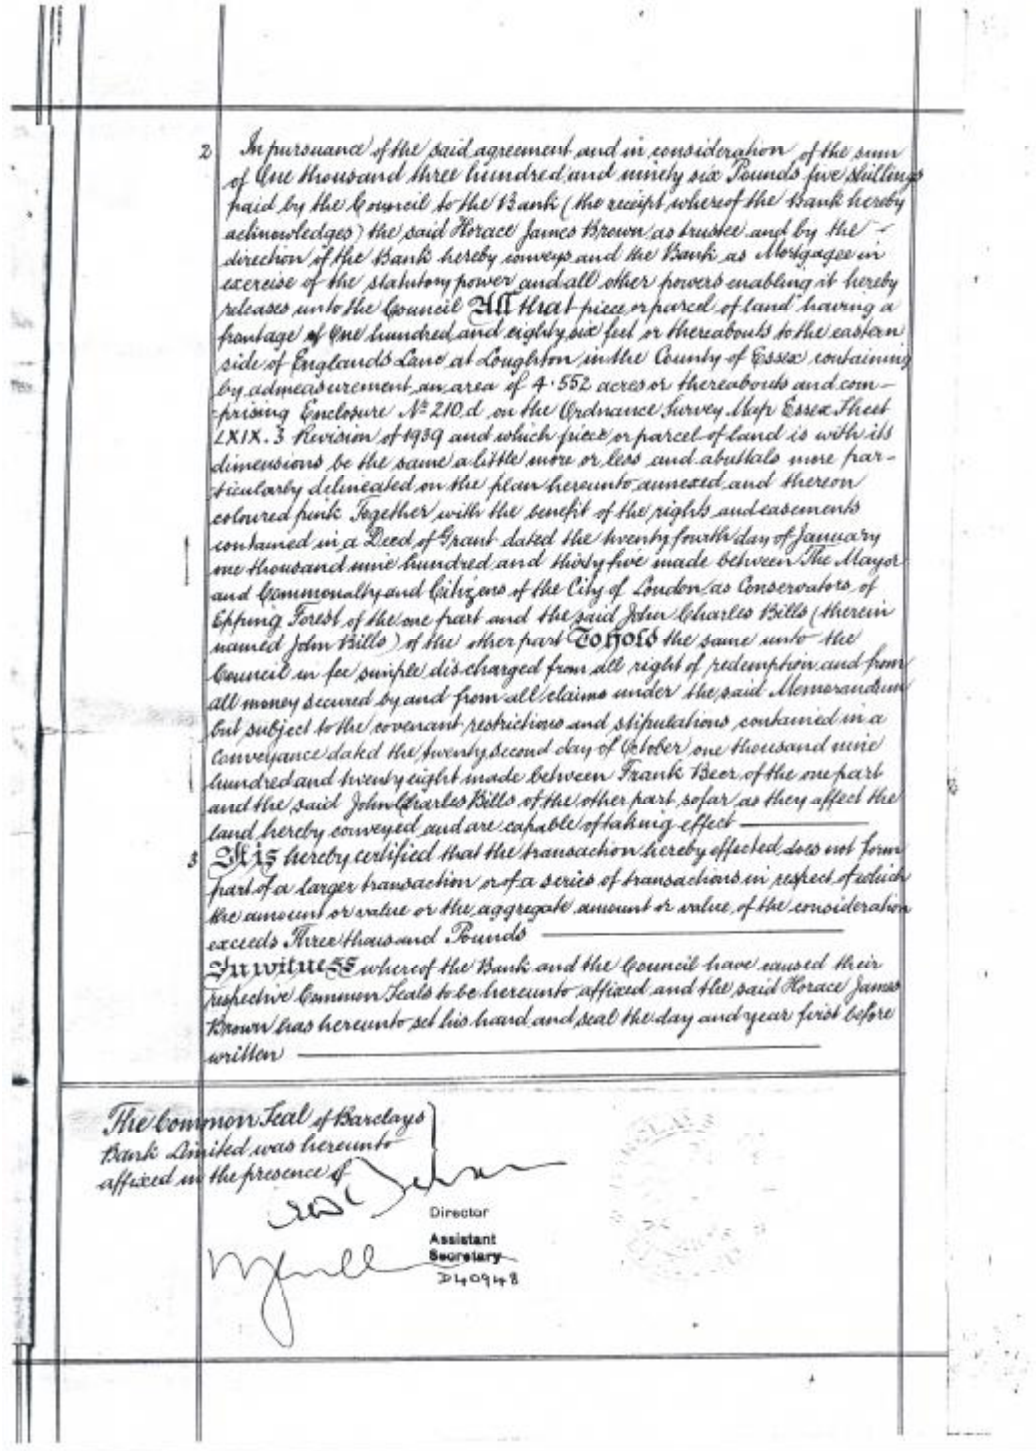 2 In pursuance of the said agreement and in consideration of the sum
of One thousand three hundred and ninety six Pounds five shillings
paid by the Council to the Bank (the receipt whereof the Bank hereby
acknowledges) the said Horace James Brown as trustee and by the -
direction of the Bank hereby conveys and the Bank as Mortgagee in
exercise of the statutory power and all other powers enabling it hereby
releases unto the Council All that piece or parcel of land having a
frontage of One hundred and eighty six feet or thereabouts to the eastern
side of Englands Lane at Loughton in the County of Essex containing
by admeasurement an area of 4·552 acres or thereabouts and com-
-prising Enclosure No 210.d on the Ordnance Survey Map Essex Sheet
LXIX.3 Revision of 1939 and which piece or parcel of land is with its
dimensions be the same a little more or less and abuttals more par-
-ticularly delineated on the plan hereunto annexed and thereon
coloured pink Together with the benefit of the rights and easements
contained in a Deed of Grant dated the twenty fourth day of January
one thousand nine hundred and thirty five made between The Mayor
and Commonalty and Citizens of the City of London as Conservators of
Epping Forest of the one part and the said John Charles Bills (therein
named John Bills) of the other part To hold the same unto the
Council in fee simple discharged from all right of redemption and from
all money secured by and from all claims under the said Memorandum
but subject to the covenant restrictions and stipulations contained in a
Conveyance dated the twenty second day of October one thousand nine
hundred and twenty eight made between Frank Beer of the one part
and the said John Charles Bills of the other part so far as they affect the
land hereby conveyed and are capable of taking effect
3 It is hereby certified that the transaction hereby effected does not form
part of a larger transaction or of a series of transactions in respect of which
the amount or value or the aggregate amount or value of the consideration
exceeds Three thousand Pounds
In witness whereof the Bank and the Council have caused their
respective Common Seals to be hereunto affixed and the said Horace James
Brown has hereunto set his hand and seal the day and year first before
written
The Common Seal of Barclays
Bank Limited was hereunto
affixed in the presence of
Director
Assistant
Secretary
D40948